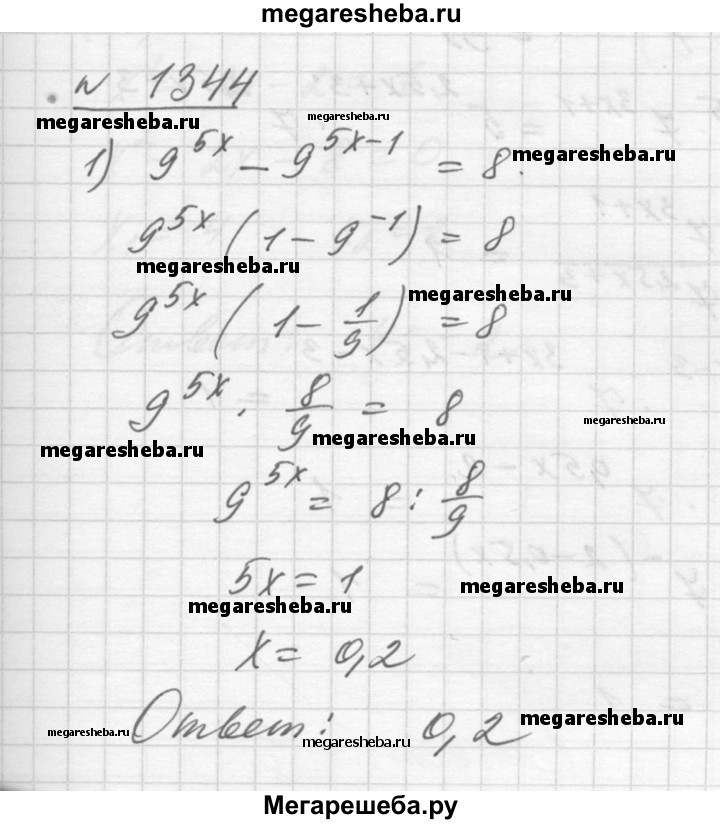 megaresheba.ru
№ 1344
megaresheba.ru megaresheba.ru
1) 9^{5x} - 9^{5x-1} = 8. megaresheba.ru
9^{5x} (1 - 9^{-1}) = 8
megaresheba.ru
9^{5x} (1 - \frac{1}{9}) = 8 megaresheba.ru
9^{5x} · \frac{8}{9} = 8 megaresheba.ru
megaresheba.ru megaresheba.ru
9^{5x} = 8 : \frac{8}{9}
5x = 1 megaresheba.ru
megaresheba.ru
x = 0,2
megaresheba.ru Ответ: megaresheba.ru 0,2 megaresheba.ru
Мегарешеба.ру